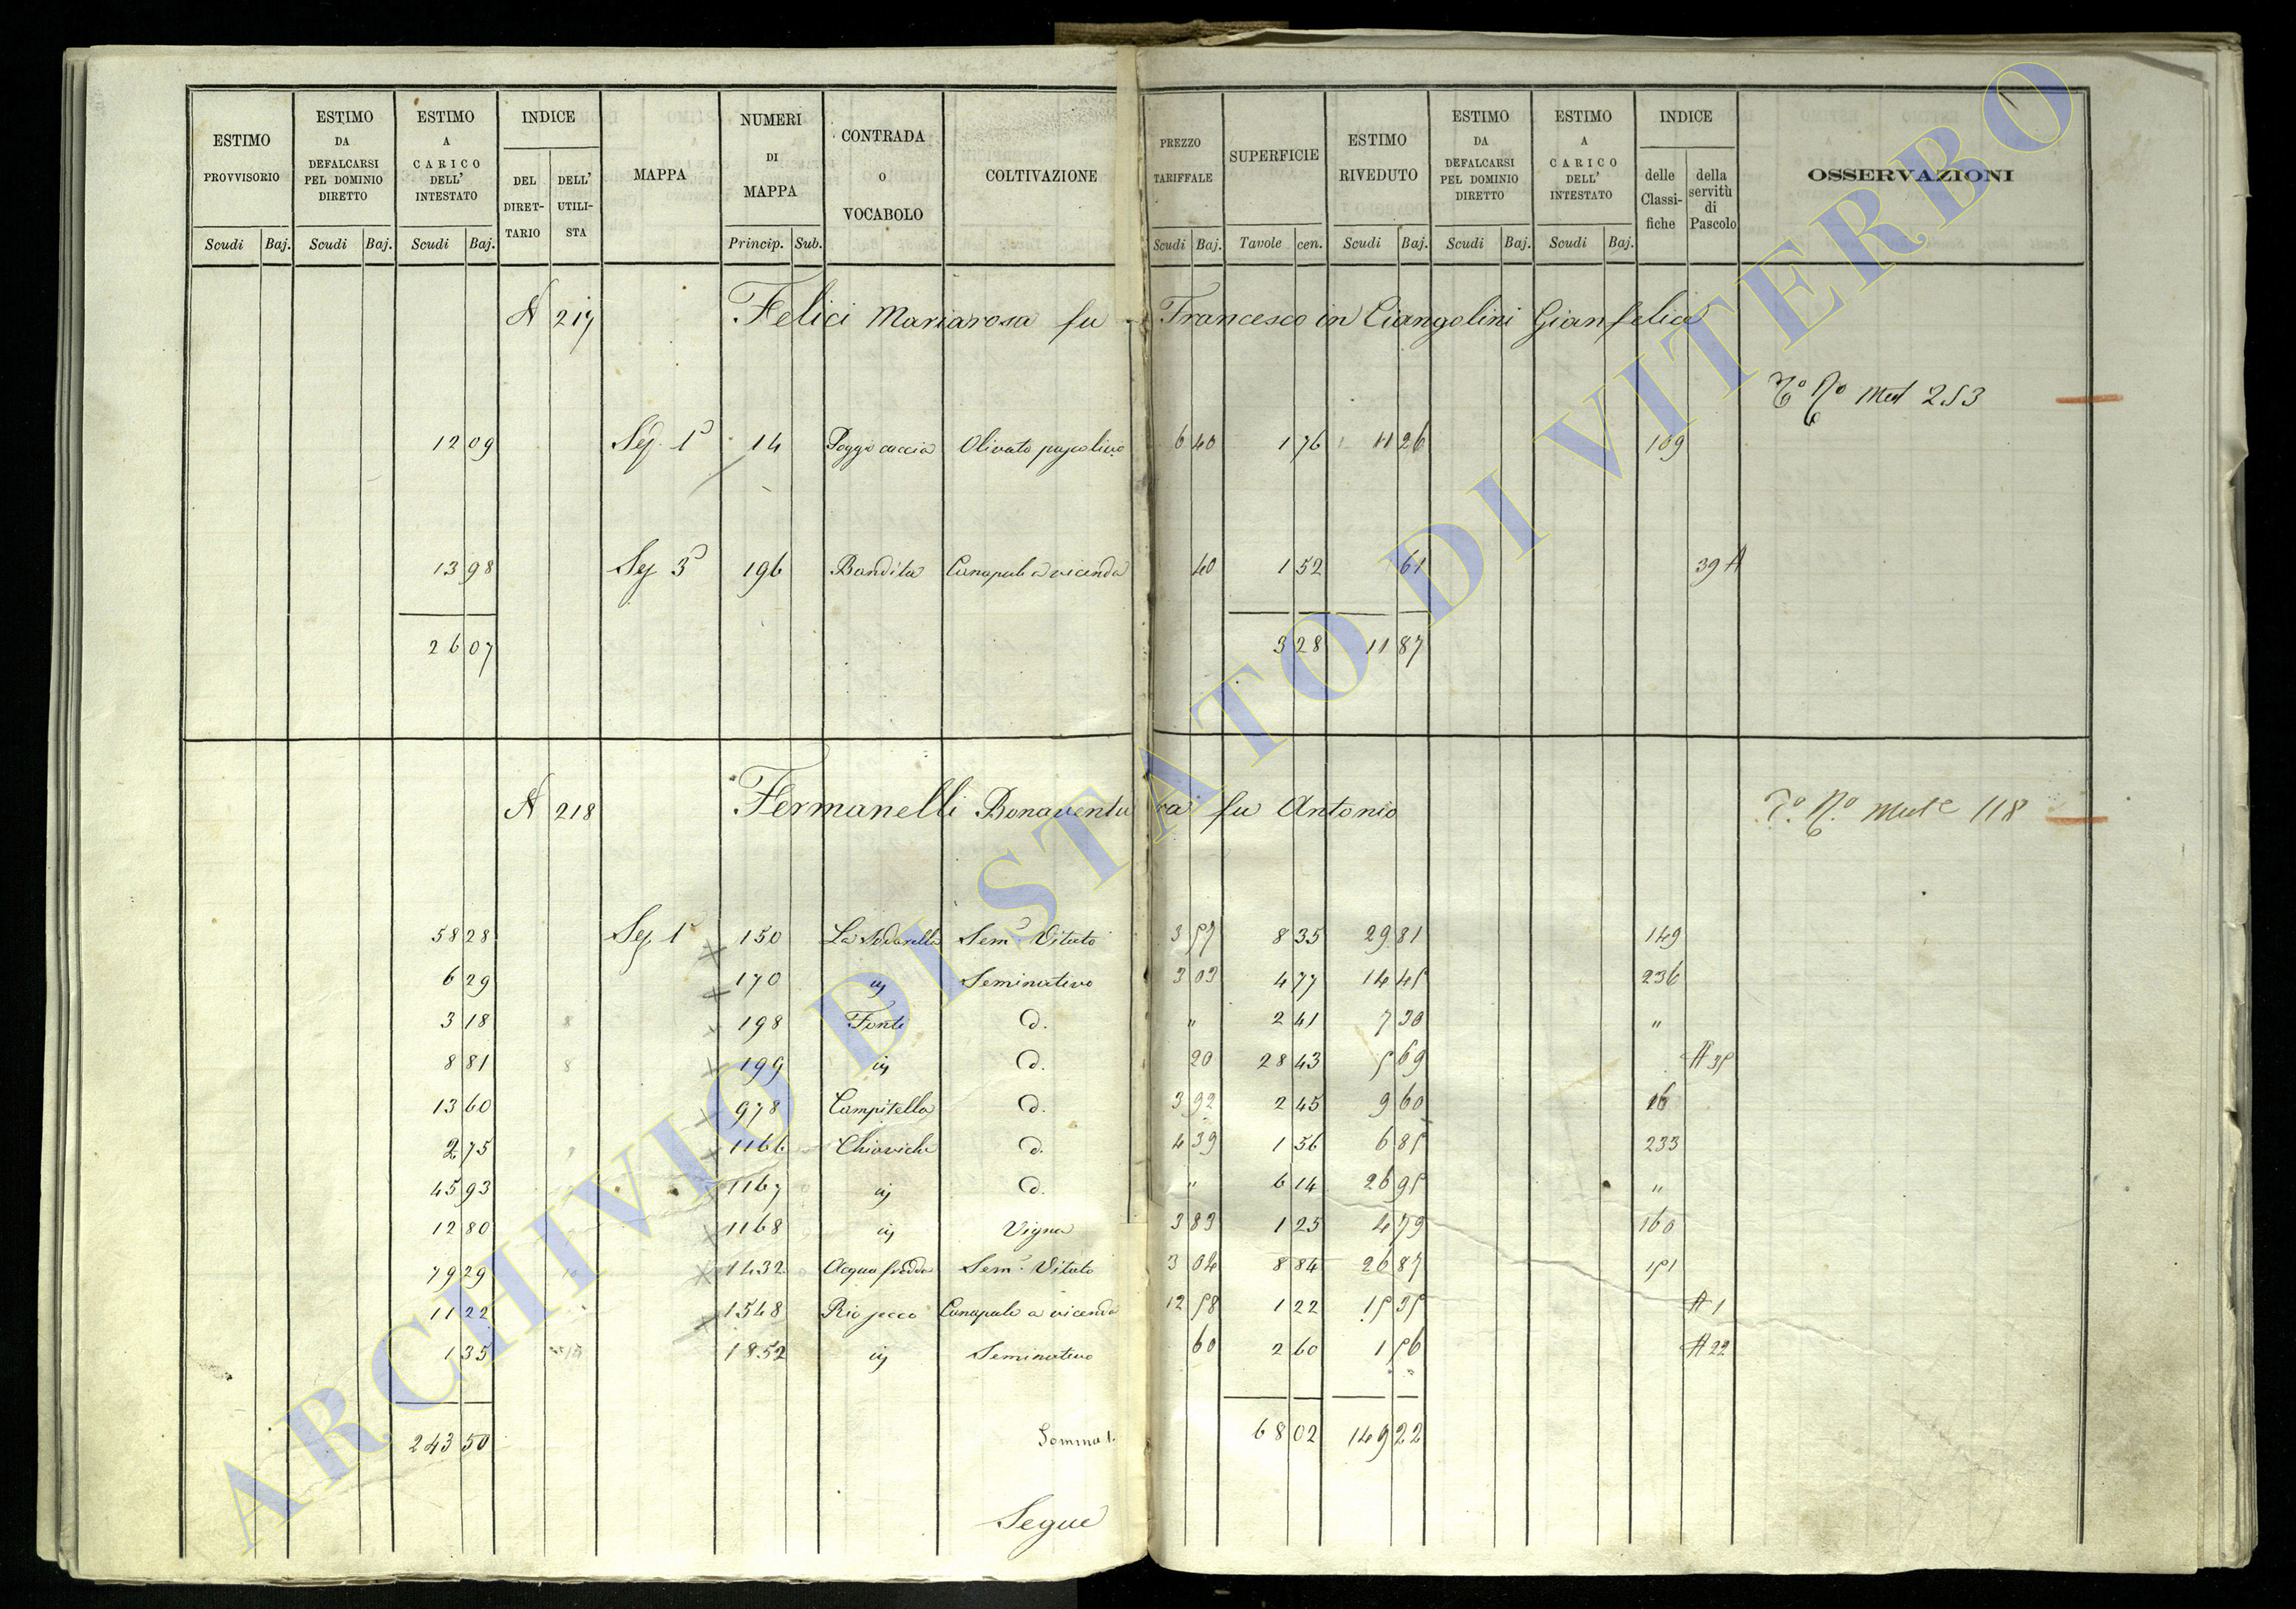 ESTIMO PROVVISORIO
ESTIMO DA DEFALCARSI PEL DOMINIO DIRETTO
ESTIMO A CARICO DELL' INTESTATO
INDICE
DEL DIRET-TARIO
DELL' UTILI-STA
MAPPA
NUMERI DI MAPPA
CONTRADA O VOCABOLO
COLTIVAZIONE
PREZZO TARIFFALE
SUPERFICIE
ESTIMO RIVEDUTO
ESTIMO DA DEFALCARSI PEL DOMINIO DIRETTO
ESTIMO A CARICO DELL' INTESTATO
INDICE
delle Classi-fiche
della servitù di Pascolo
OSSERVAZIONI
Scudi Baj. Scudi Baj. Scudi Baj. Princip. Sub. Scudi Baj. Tavole cen. Scudi Baj. Scudi Baj. Scudi Baj.
N 217 Felici Mariarosa fu Francesco in Ciangolini Gianfelice
253
12 09 Sez. 1a 14 Poggio caccia Olivato pascolivo 6 40 1 76 11 26 109
13 98 Sez 3a 196 Bandita Canapule a vicenda 40 1 52 61 39 A
26 07 3 28 11 87
N 218 Fermanelli Bonaventura fu Antonio
118
58 28 Sez 1a 150 La Sodarella Sem. Vitato 3 57 8 35 29 81 149
6 29 170 ivi Seminativo 3 03 4 77 14 45 236
3 18 198 Fonte d. " 2 41 7 30 "
8 81 199 ivi d. 20 28 43 5 69 A 35
13 60 978 Campitella d. 3 92 2 45 9 60 16
2 75 1166 Chiaviche d. 4 39 1 56 6 85 233
45 93 1167 ivi d. " 6 14 26 95 "
12 80 1168 ivi Vigna 3 83 1 25 4 79 160
79 29 1432 Acqua fredda Sem. Vitato 3 04 8 84 26 87 151
11 22 1548 Rio secco Canapule a vicenda 12 58 1 22 15 35 A 1
1 35 1852 ivi Seminativo 60 2 60 1 56 A 22
243 50 Somma 68 02 149 22
Segue
ARCHIVIO DI STATO DI VITERBO